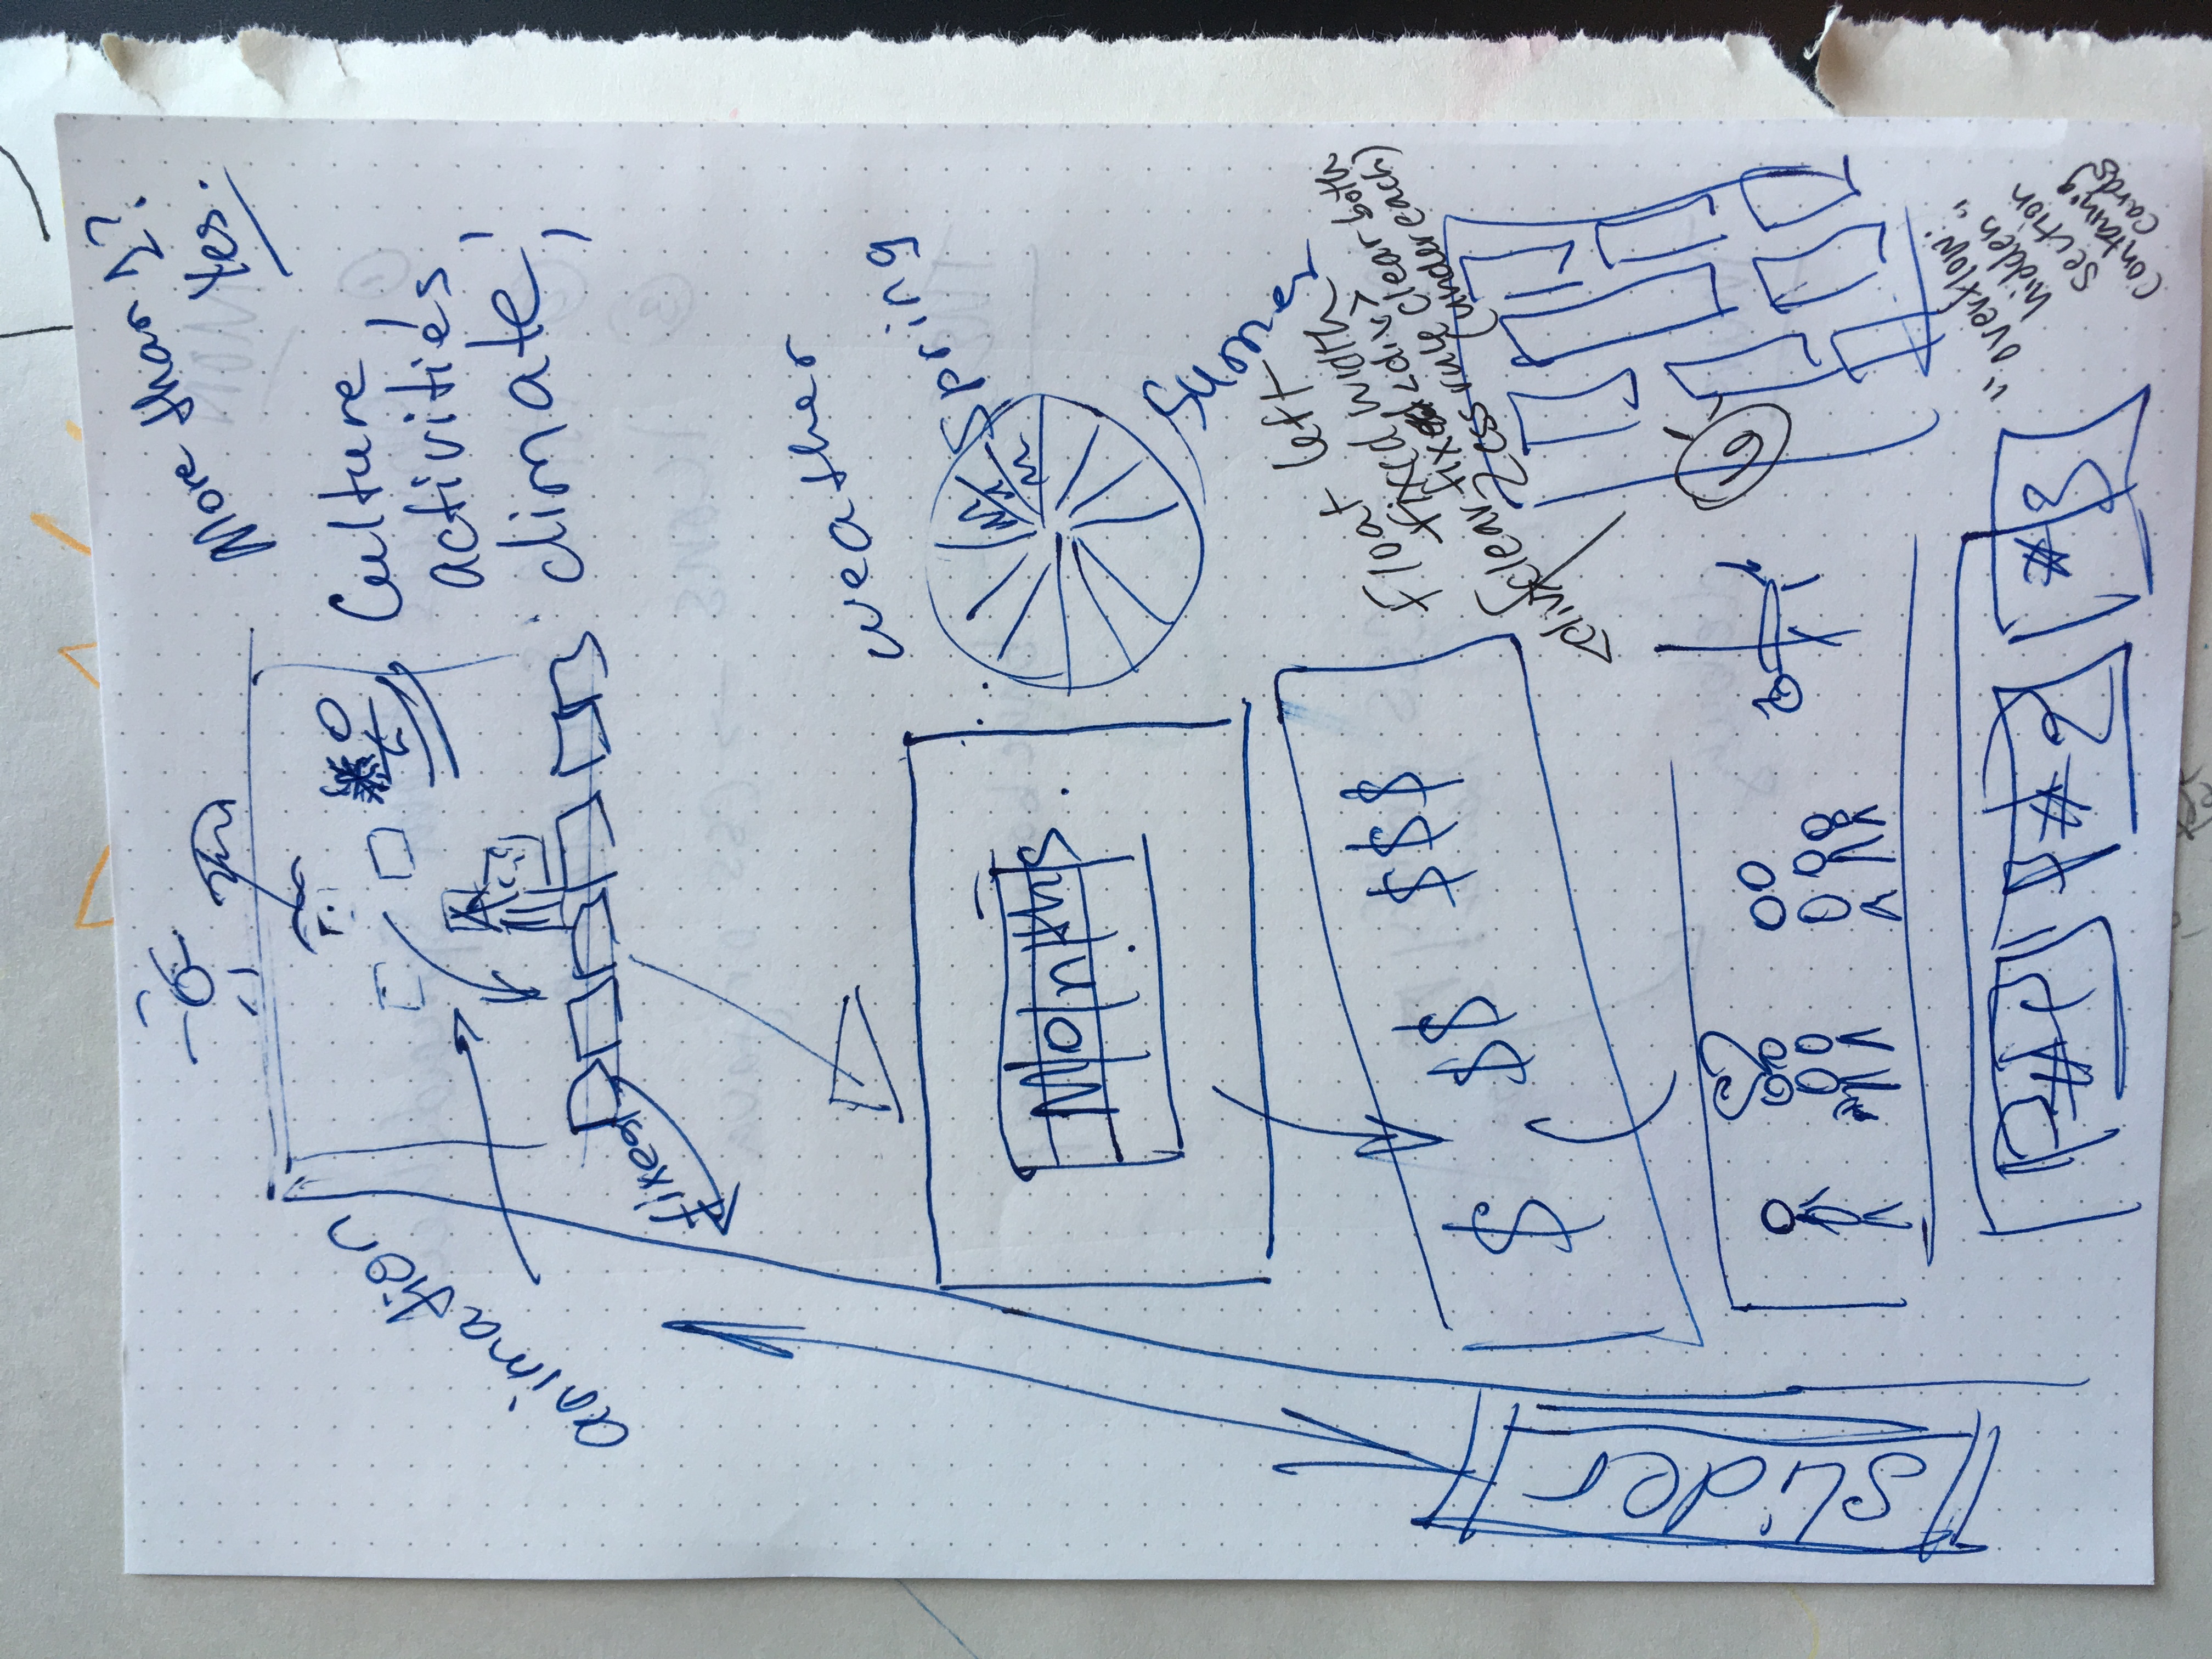 More than 1?
Yes.
animation
Culture,
activities,
climate,
fixed
weather
Spring
Months
Summer
Float left
fixed width
<div clearfix <div>
2 css rule clear both
(under each)
$
$$
$$$
slider
6
P#1
P#2
#3
"overflow:
hidden"
section
containing
cards